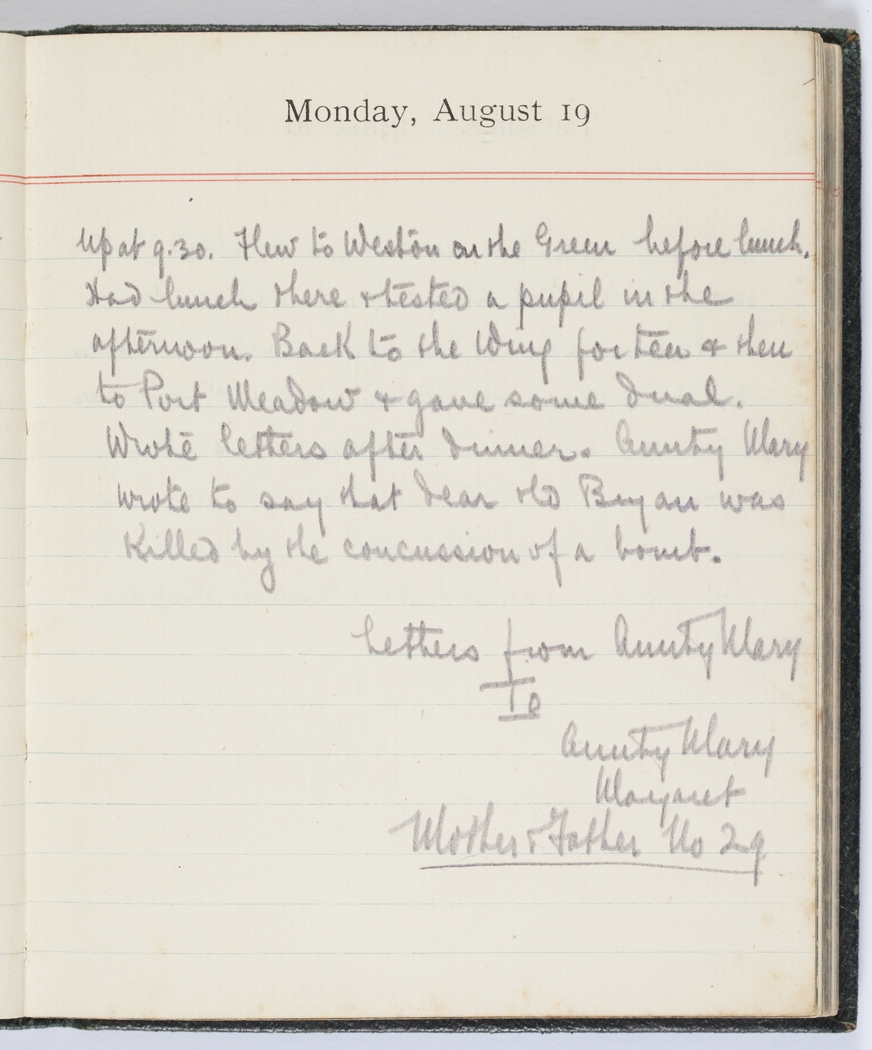 Monday, August 19
Up at 9.30. Flew to Weston on the Green before lunch.
Had lunch there & tested a pupil in the
afternoon. Back to the Wing for tea & then
to Port Meadow & gave some dual.
Wrote letters after dinner. Aunty Mary
wrote to say that dear old Bryan was
killed by the concussion of a bomb.
Letters from Aunty Mary
To
Aunty Mary
Margaret
Mother & Father No 29